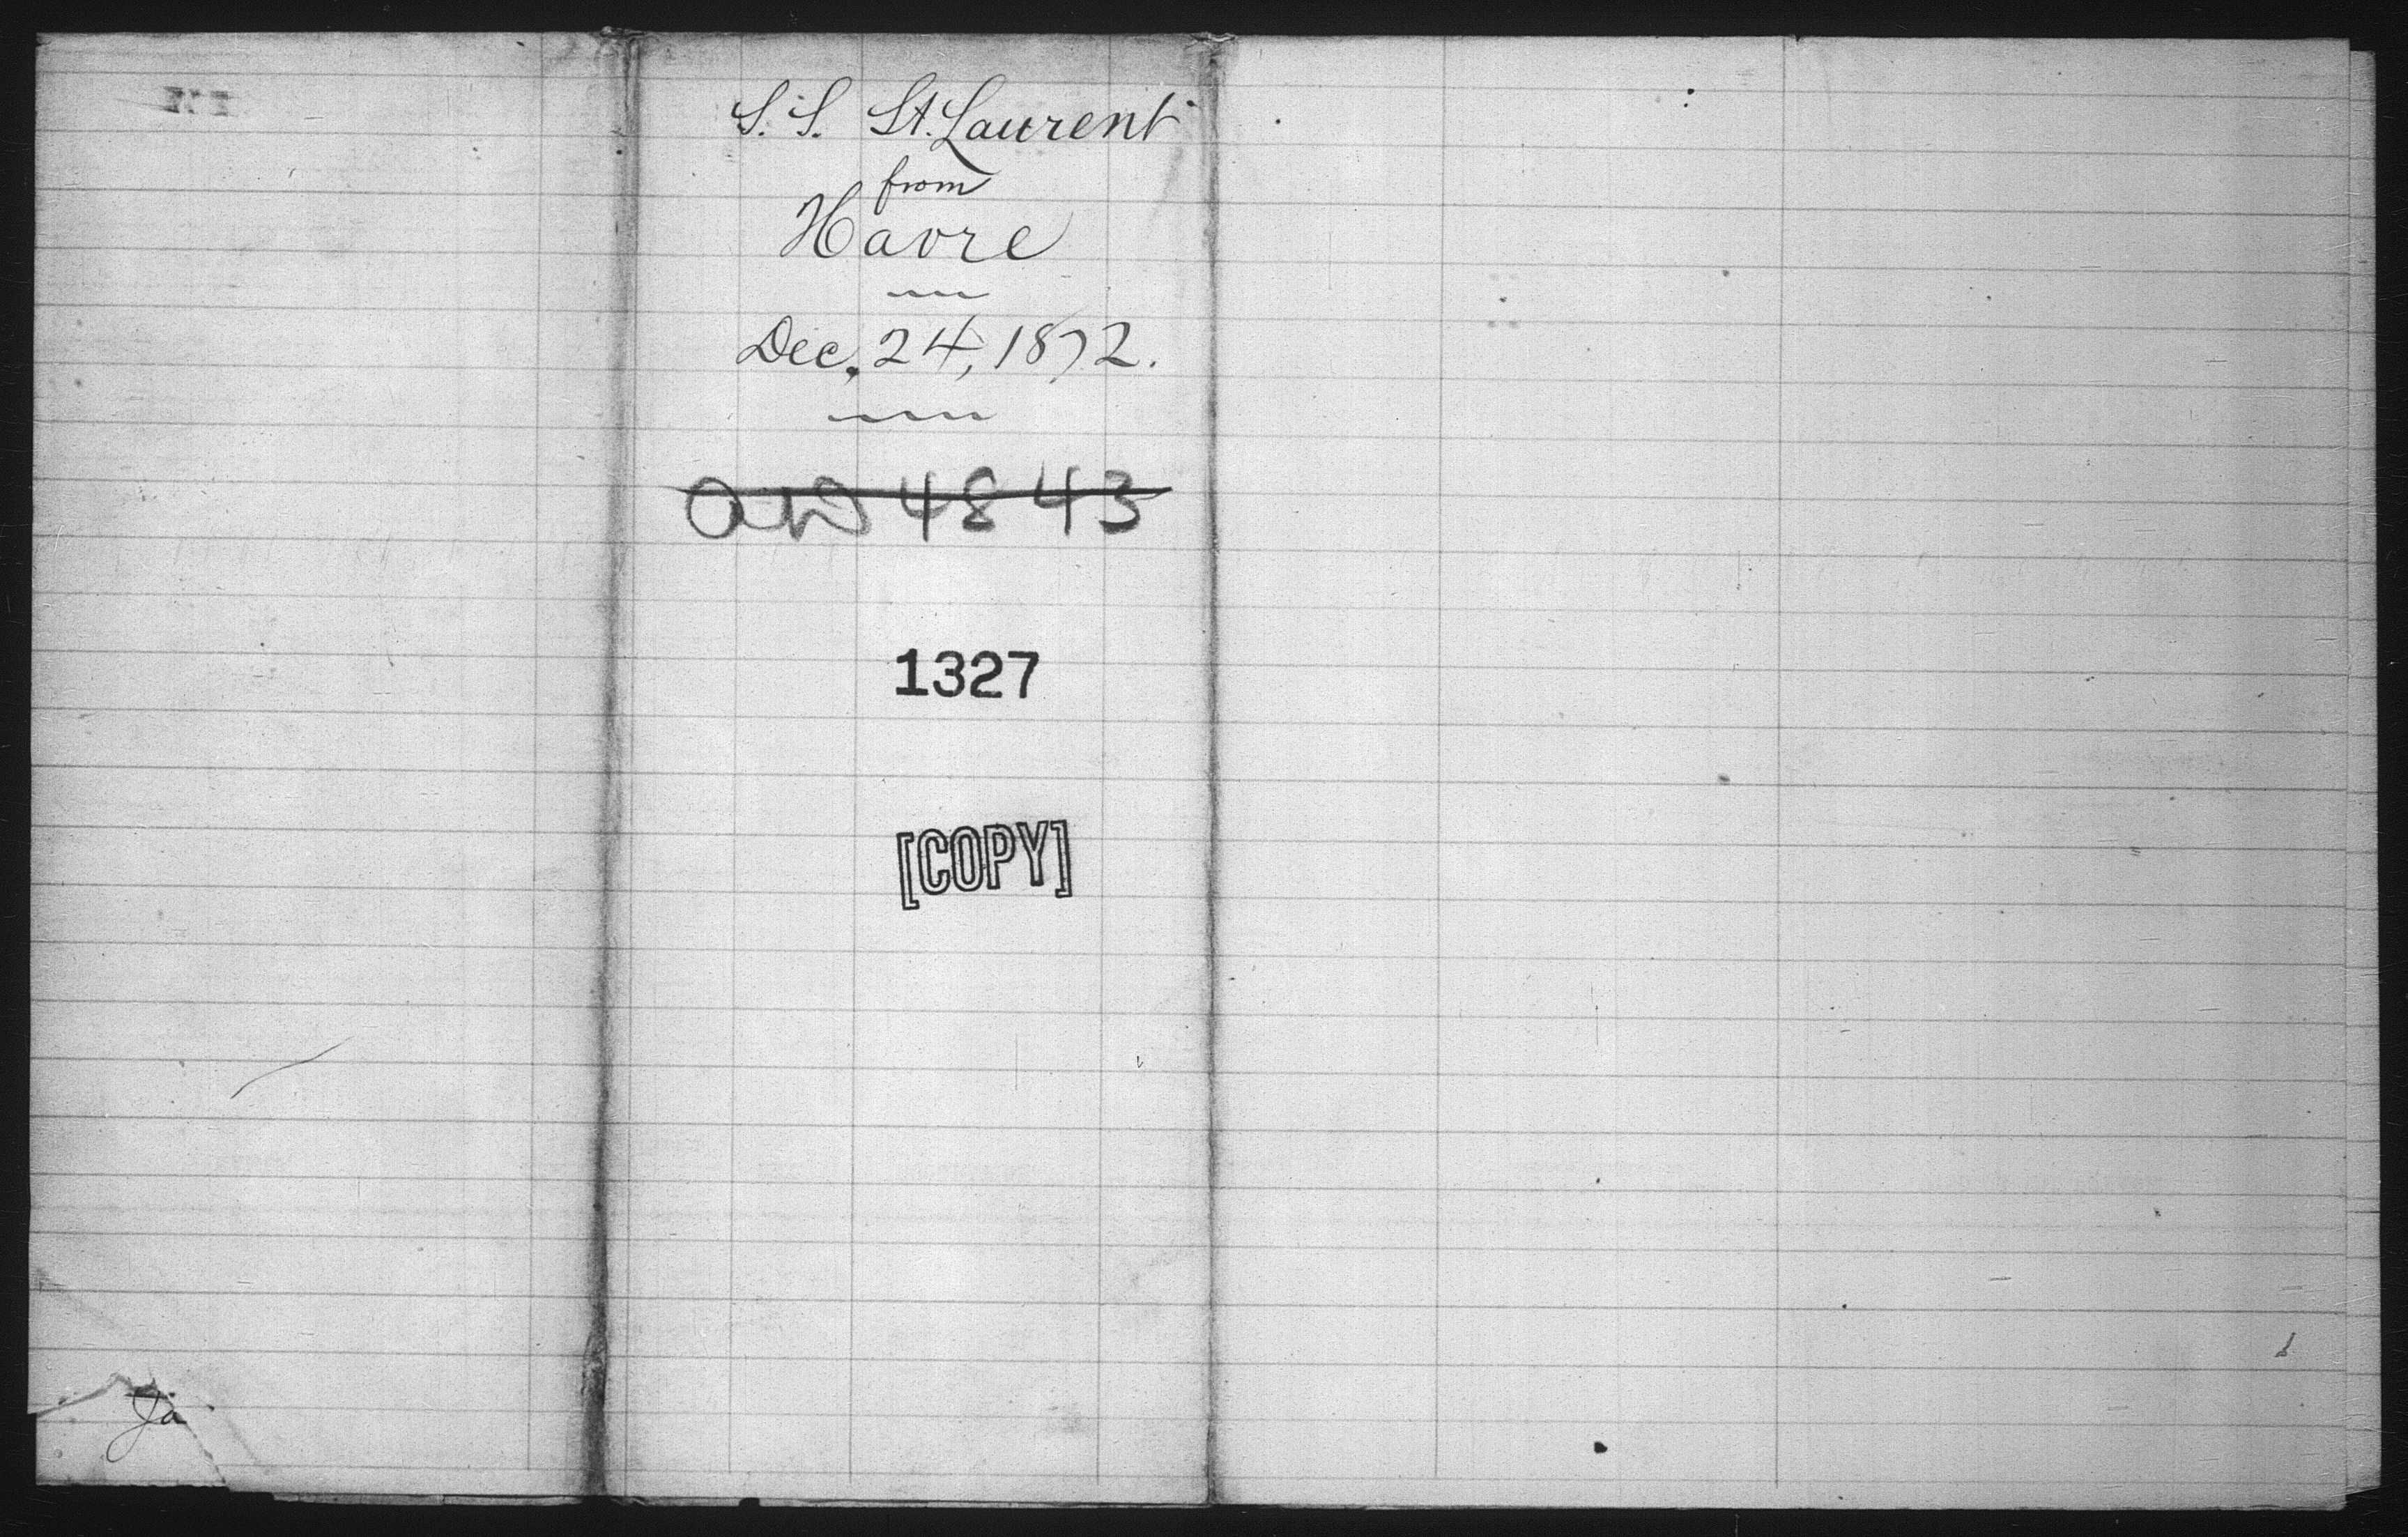 S. S. St. Laurent
from
Havre
Dec. 24, 1872.
4843
1327
[COPY]
Ja